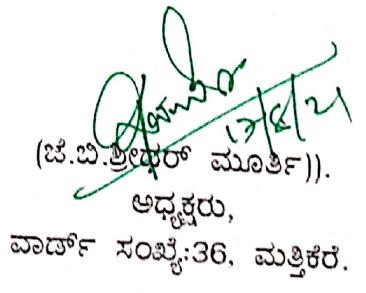 17/8/21
(ಜೆ.ಬಿ.ಶ್ರೀಧರ್ ಮೂರ್ತಿ)).
ಅಧ್ಯಕ್ಷರು,
ವಾರ್ಡ್ ಸಂಖ್ಯೆ:36, ಮತ್ತಿಕೆರೆ.